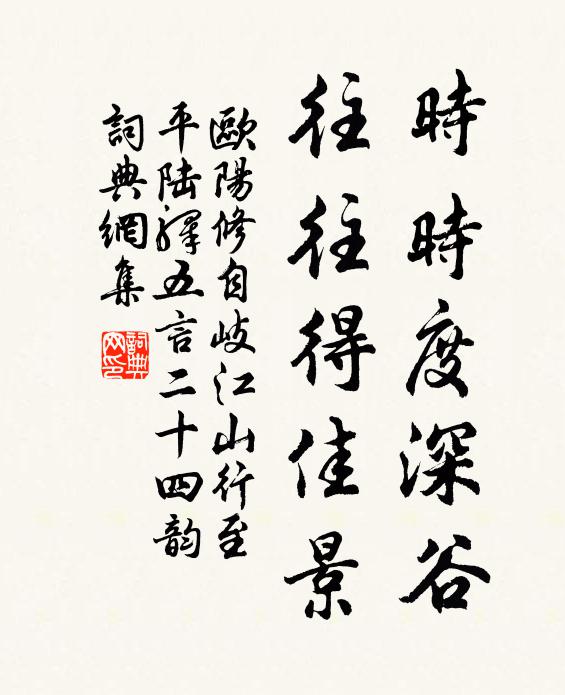 時時度深谷
往往得佳景
歐陽修自岐江山行至
平陸驛五言二十四韵
詞典網集
詞典
网印